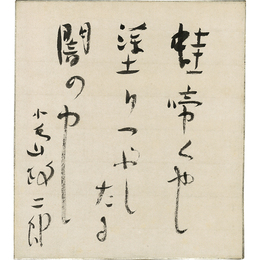 蛙啼くや
塗りつぶしたる
闇の中
小島政二郎